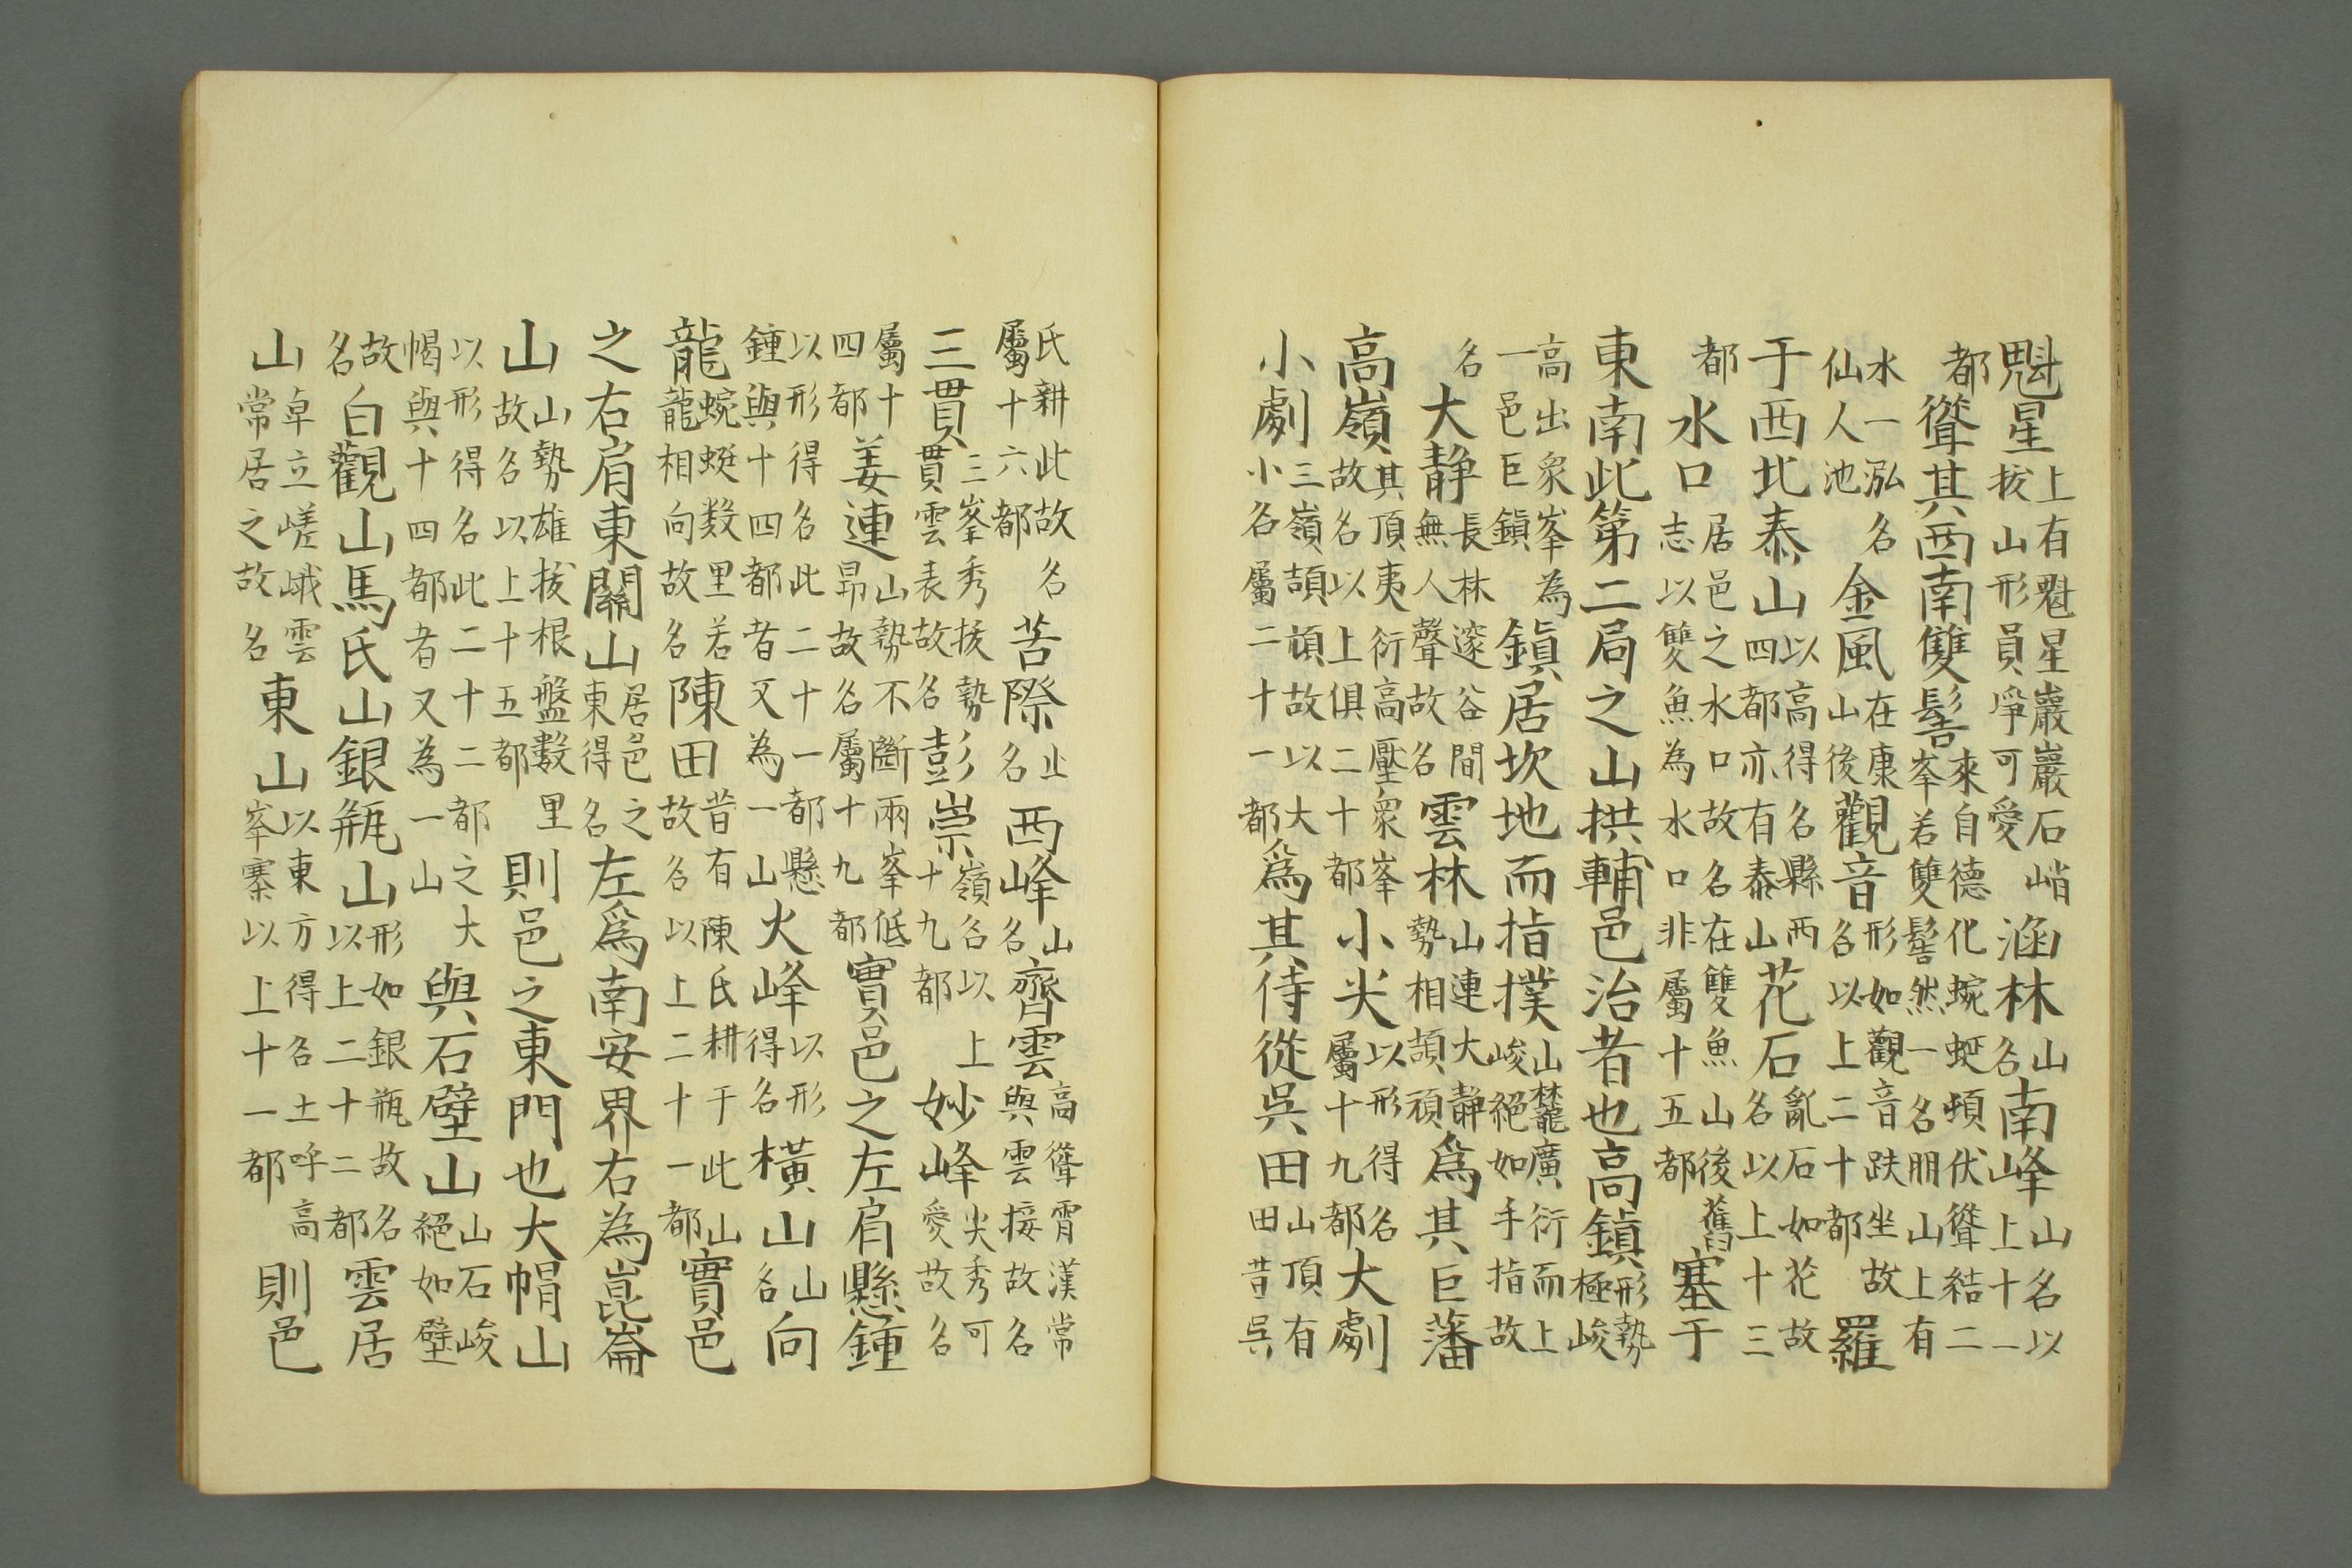 魁星上有魁星巖巖石峭拔山形員淨可愛涵林山名南峰山名以上十一
都聳其西南雙髻來自德化蜿蜒頓伏聳結二峯若雙髻然一名朋山上有
水一泓名仙人池金風在康山後觀音形如觀音趺坐故名以上二十都羅
于西北泰山以高得名縣西四都亦有泰山花石亂石如花故名以上十三
都水口居邑之水口故名在雙魚山後舊志以雙魚為水口非屬十五都塞于
東南此第二局之山拱輔邑治者也高鎮形勢極峻
高出衆峯為一邑巨鎮鎮居坎地而指撲山麓廣衍而上峻絕如手指故
名大静長林邃谷間無人聲故名雲林山連大靜勢相頡頏爲其巨藩
高嶺其頂夷衍高壓衆峯故名以上俱二十都小尖以形得名屬十九都大劇
小劇三嶺頡頏故以大小名屬二十一都爲其待從吳田山頂有田昔吳
氏耕此故名屬十六都苦際止名西峰山名齊雲高聳霄漢常與雲接故名
三貫三峯秀拔勢貫雲表故名彭崇嶺名以上十九都妙峰尖秀可愛故名
屬十四都姜連山勢不斷兩峯低昂故名屬十九都實邑之左肩懸鍾
以形得名此二十一都懸鍾與十四都者又為一山火峰以形得名橫山山名向
龍蜿蜒数里若龍相向故名陳田昔有陳氏耕于此山故名以上二十一都實邑
之右肩東關山居邑之東得名左爲南安界右為崑崙
山山勢雄拔根盤数里故名以上十五都則邑之東門也大帽山
以形得名此二十二都之大帽與十四都者又為一山與石壁山山石峻絕如壁
故名白觀山馬氏山銀瓶山形如銀瓶故名以上二十二都雲居
山卓立嵯峨雲常居之故名東山以東方得名土呼高峯寨以上十一都則邑